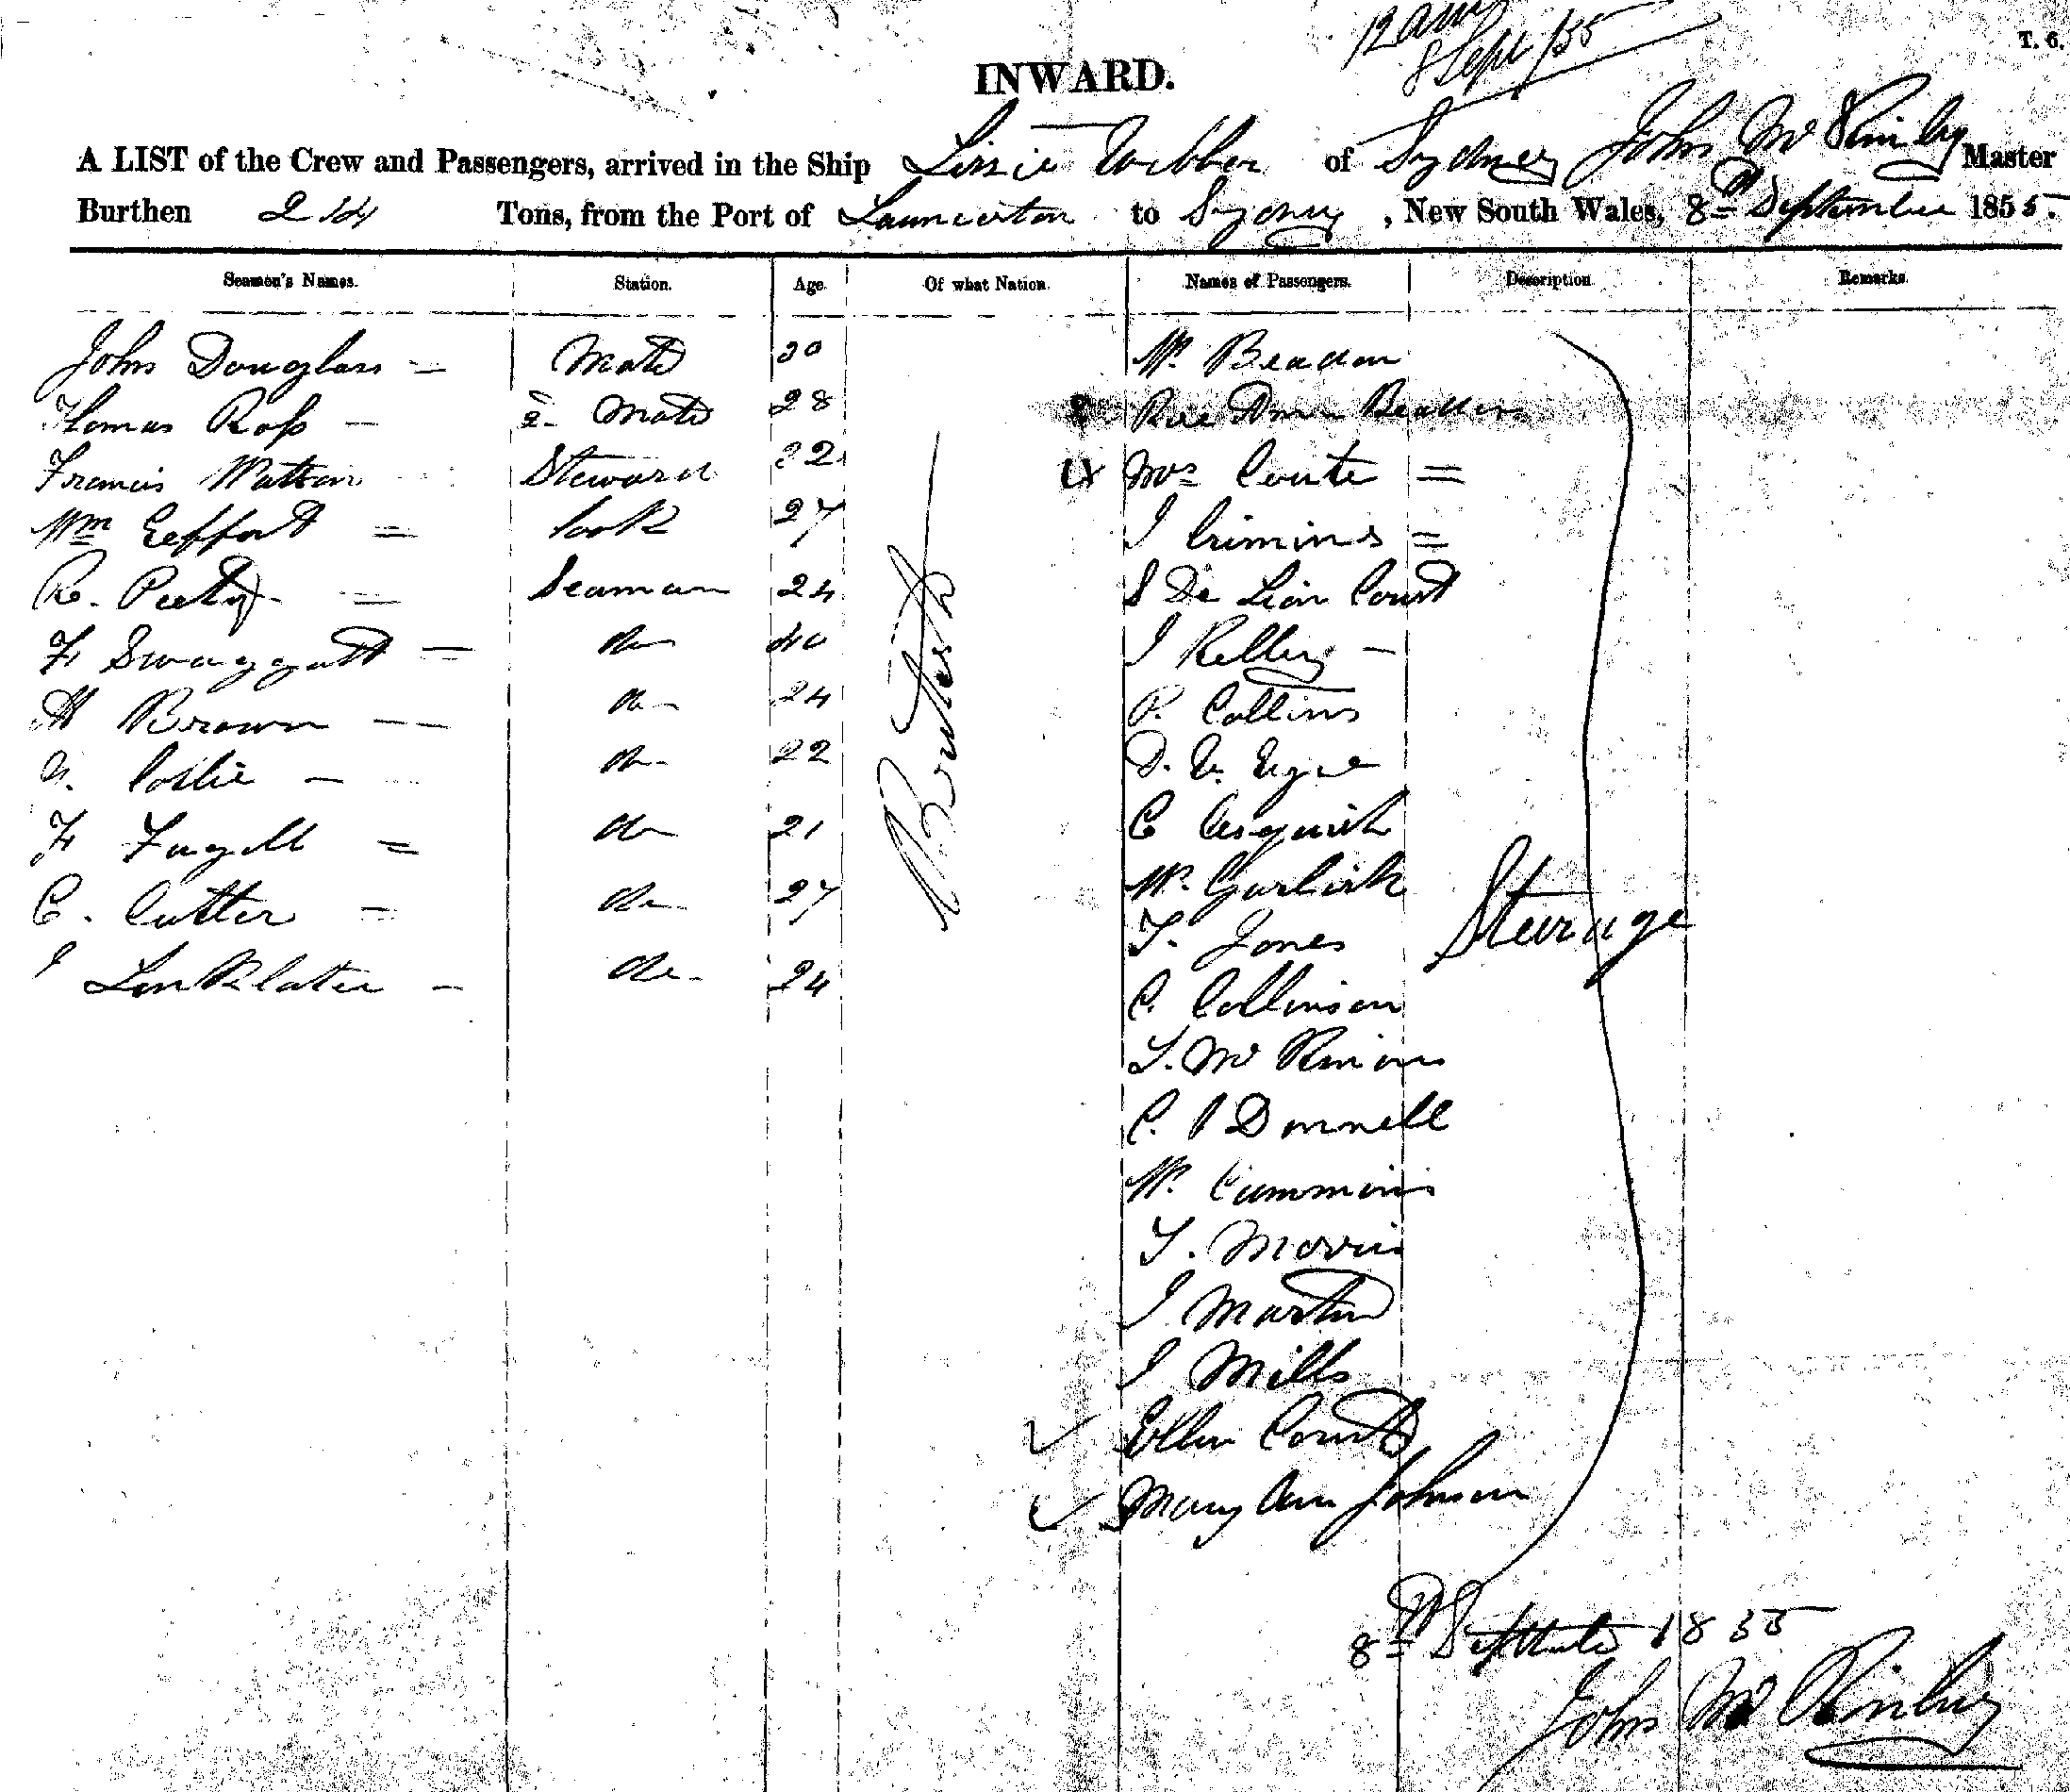 12 am
8 Sept /55
T. 6.
INWARD.
A LIST of the Crew and Passengers, arrived in the Ship Lizzie Webber of Sydney John Mc Master
Burthen 214 Tons, from the Port of Launceston to Sydney, New South Wales, 8th September 1855.
Seamen's Names. Station. Age. Of what Nation. Names of Passengers. Description. Remarks.
John Douglass Mate 30 W. Beadon
Thomas Ross 2 Mate 28
Francis Watson Steward 22 Mrs Coute
Wm Cook 27 J Crimins
R. Seaman 24 S De Lion Court
F Swaggatt do 40 J Kelly
H Brown do 24 P. Collins
do 22 D.
F do 21 C Asquith
C. Cutter do 27 W. Garlick
J Linklater do 24 T. Jones
British
Steerage
C. Collinson
T. Mc
C. O Donnell
W. Cummins
T. Morris
J Martin
J Mills
Ellen Court
Mary Ann Johnson
8th September 1855
John Mc